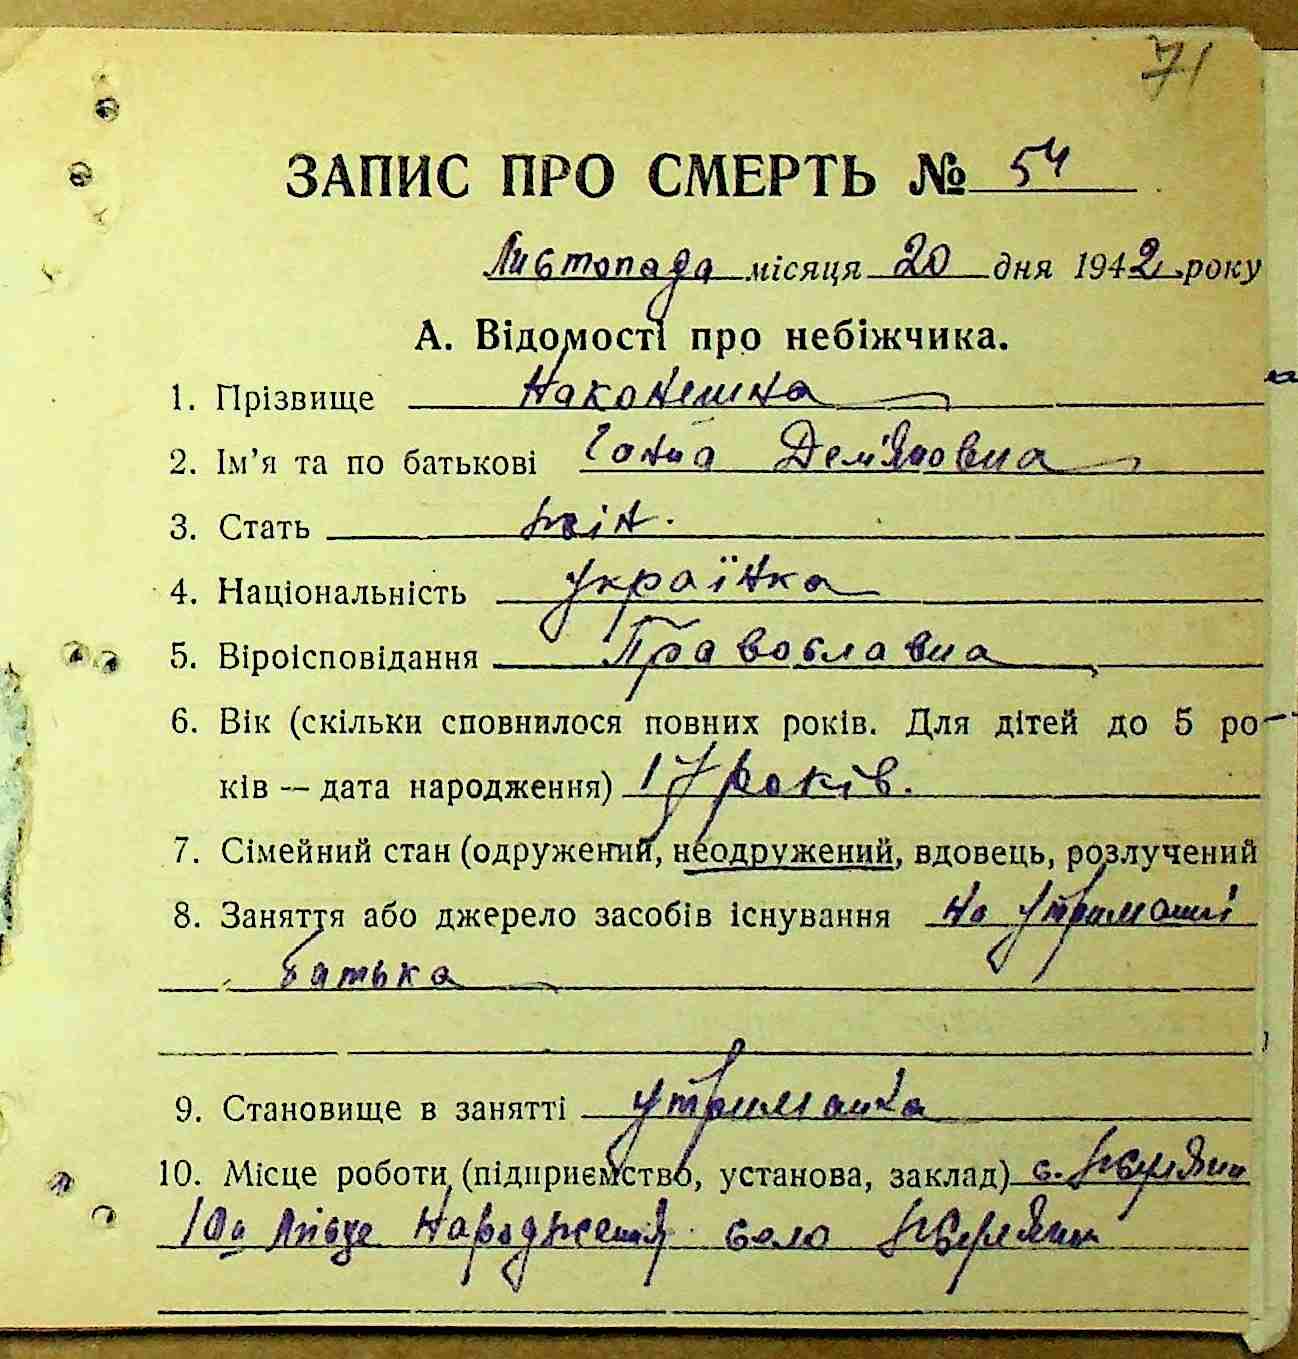 71
ЗАПИС ПРО СМЕРТЬ № 54
Листопада місяця 20 дня 1942 року
А. Відомості про небіжчика.
1. Прізвище Наконешна
2. Ім'я та по батькові Ганна Дем'яновна
3. Стать жін.
4. Національність українка
5. Віроісповідання Православна
6. Вік (скільки сповнилося повних років. Для дітей до 5 ро-
ків — дата народження) 17 років.
7. Сімейний стан (одружений, неодружений, вдовець, розлучений
8. Заняття або джерело засобів існування на утриманні
батька
9. Становище в занятті утриманка
10. Місце роботи (підприємство, установа, заклад) с.
10а місце народження село